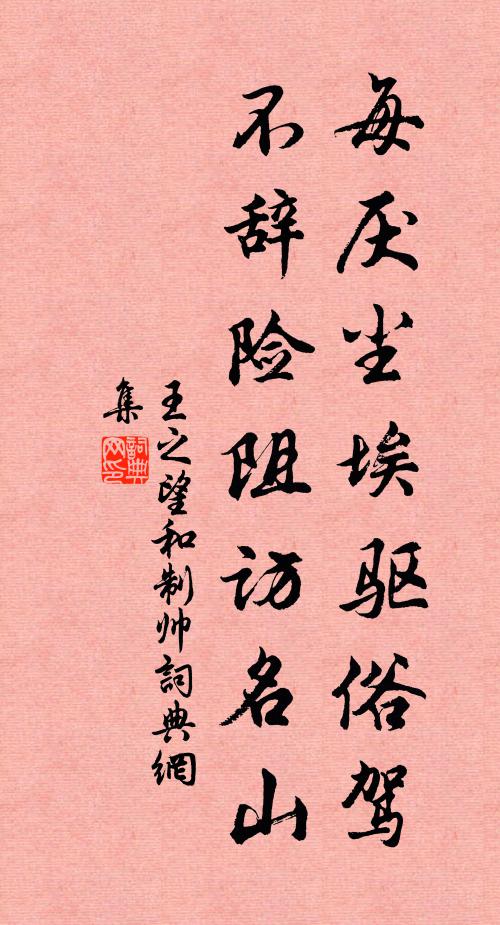 每厌尘埃驱俗驾
不辞险阻访名山
王之望和制帅詞典網
集
詞典網印